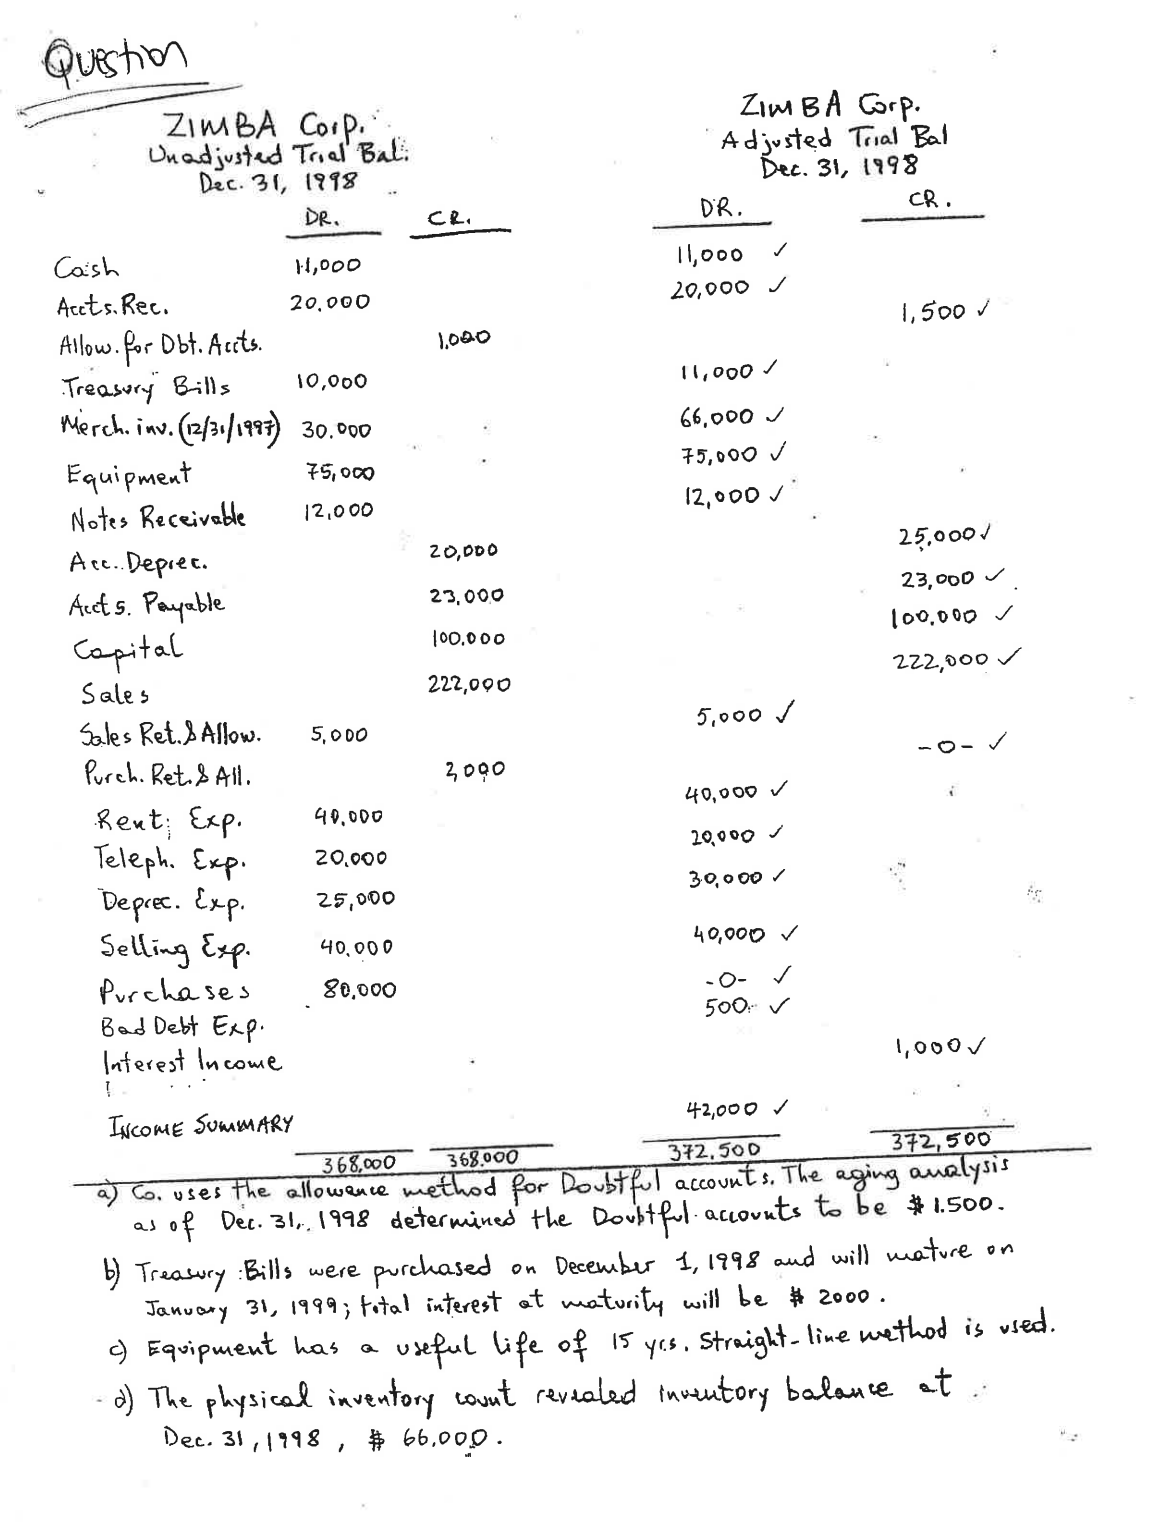 Question
ZIMBA Corp.
Unadjusted Trial Bal.
Dec. 31, 1998
ZIMBA Corp.
Adjusted Trial Bal
Dec. 31, 1998
DR. CR. DR. CR.
Cash 11,000 11,000 ✓
Accts. Rec. 20,000 20,000 ✓
Allow. for Dbt. Accts. 1,000 1,500 ✓
Treasury Bills 10,000 11,000 ✓
Merch. inv. (12/31/1997) 30.000 66,000 ✓
Equipment 75,000 75,000 ✓
Notes Receivable 12,000 12,000 ✓
Acc. Deprec. 20,000 25,000 ✓
Accts. Payable 23,000 23,000 ✓
Capital 100.000 100.000 ✓
Sales 222,000 222,000 ✓
Sales Ret. & Allow. 5,000 5,000 ✓
Purch. Ret. & All. 2,000 -0- ✓
Rent Exp. 40,000 40,000 ✓
Teleph. Exp. 20,000 20,000 ✓
Deprec. Exp. 25,000 30,000 ✓
Selling Exp. 40,000 40,000 ✓
Purchases 80,000 -0- ✓
Bad Debt Exp. 500 ✓
Interest Income 1,000 ✓
INCOME SUMMARY 42,000 ✓
368,000 368.000 372,500 372,500
a) Co. uses the allowance method for Doubtful accounts. The aging analysis
as of Dec. 31, 1998 determined the Doubtful accounts to be $ 1.500.
b) Treasury Bills were purchased on December 1, 1998 and will mature on
January 31, 1999; total interest at maturity will be $ 2000.
c) Equipment has a useful life of 15 yrs. Straight-line method is used.
d) The physical inventory count revealed inventory balance at
Dec. 31, 1998, $ 66,000.